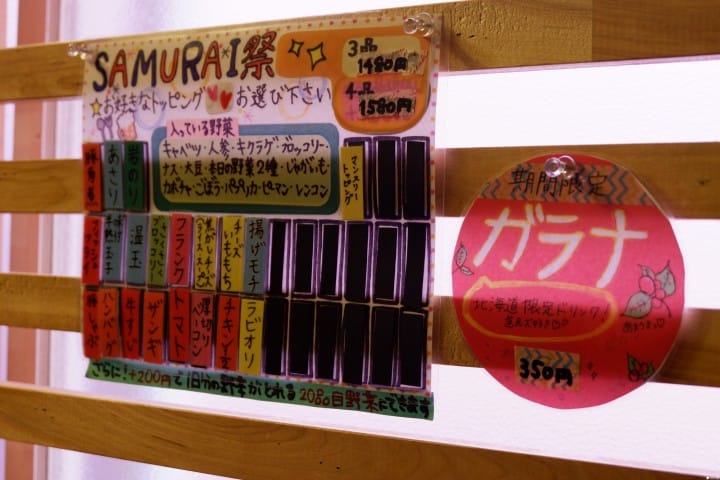 SAMURAI祭
3品
1480円
4品
1580円
お好きなトッピング お選び下さい
入っている野菜
キャベツ・人参・キクラゲ・ブロッコリー・
ナス・大豆・本日の野菜2種・じゃがいも・
カボチャ・ごぼう・パプリカ・ピーマン・レンコン
豚角煮
あさり
岩のり
マンスリートッピング
フィッシュフライ
味付半熟玉子
温玉
ブロッコリー
フランク
チーズいももち
揚げモチ
豚しゃぶ
ハンバーグ
牛すじ
ザンギ
トマト
厚切りベーコン
チキン1/2
ラビオリ
さらに!+200円で1日分の野菜がとれる20品目野菜にできます
期間限定
ガラナ
北海道限定ドリンク!
350円